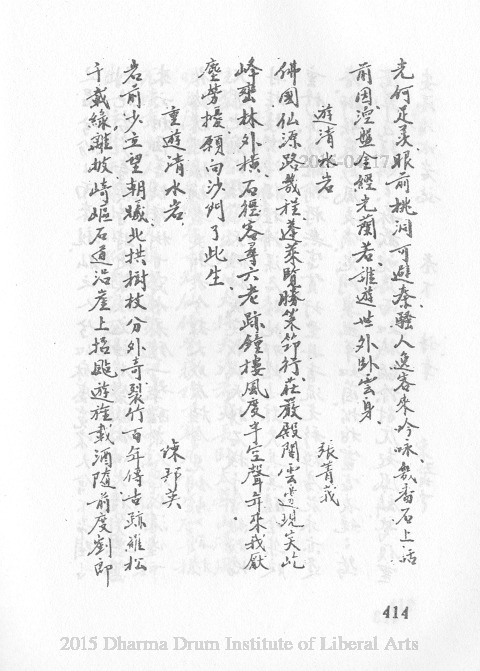 光何足羨眼前桃洞可避秦騷人逸客來吟咏幾番石上話
前因湮盤金經光蘭若誰遊世外卧雲身
遊清水岩 張菁莪
佛國仙源路幾程蓬萊覽勝策筇行莊嚴殿閣雲邊現突屹
峰巒林外橫石徑客尋六老跡鐘樓風度半空聲年來我厭
塵勞擾願向沙門了此生
重遊清水岩 陳邦英
岩前少立望朝曦北拱樹枝分外奇裂竹百年傳古跡羅松
千載綠離披崎嶇石道沿崖上招颭遊旌載酒隨前度劉郎
414
2015 Dharma Drum Institute of Liberal Arts